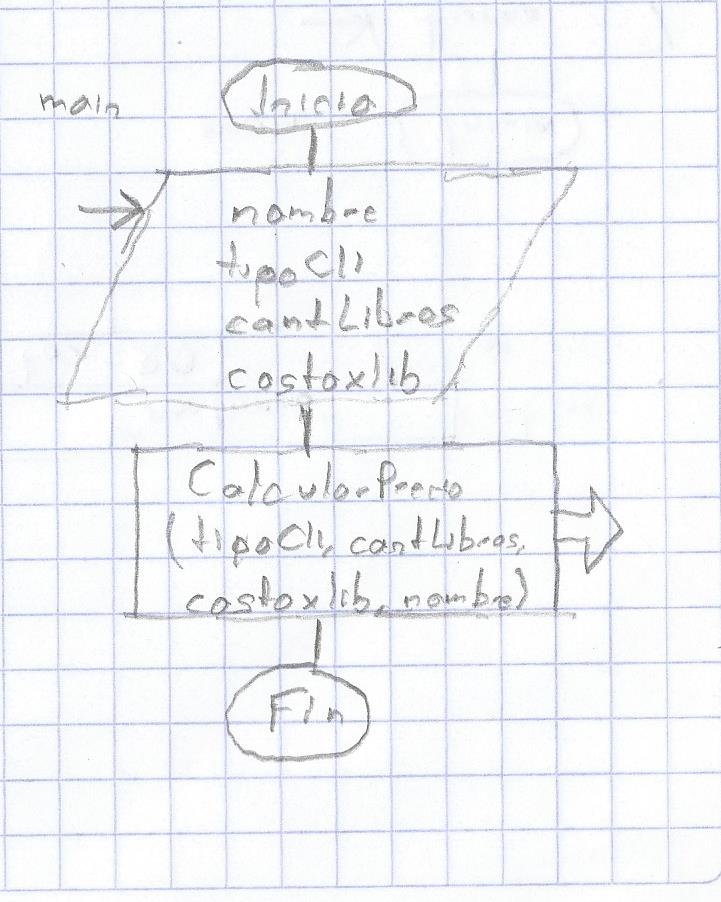 main
Inicio
nombre
tipoCli
cantLibros
costoxlib
CalcularPrecio
(tipoCli, cantLibros,
costoxlib, nombre)
Fin